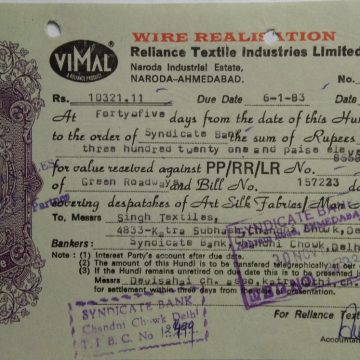 WIRE REALISATION
VIMAL
A RELIANCE PRODUCT
Reliance Textile Industries Limited
Naroda Industrial Estate,
NARODA-AHMEDABAD.
No.
Rs. 10321.11 Due Date 6-1-83
At Fortyfive days from the date of this Hun
to the order of Syndicate Bank the sum of Rupees
three hundred twenty one and paise eleve
for value received against PP/RR/LR No.
of Green Roadways and Bill No. 157223 d
covering despatches of Art Silk Fabrics/Man
To, Messrs Singh Textiles,
4833-Katra Subhash
Bankers: Syndicate Bank, Chowk, Delh
Note : (1) Interest Party's account after due date.
(2) The amount of this Hundi is to be transfered telegraphically to our
(3) If the Hundi remains unretired on due date this is to be presented
Messrs
settlement within three days from the date of presentation.
SYNDICATE BANK
Chandni Chowk Delhi
T. I B C. No
SYNDICATE BANK
AHMEDABAD
For Reliance Text
Accountant